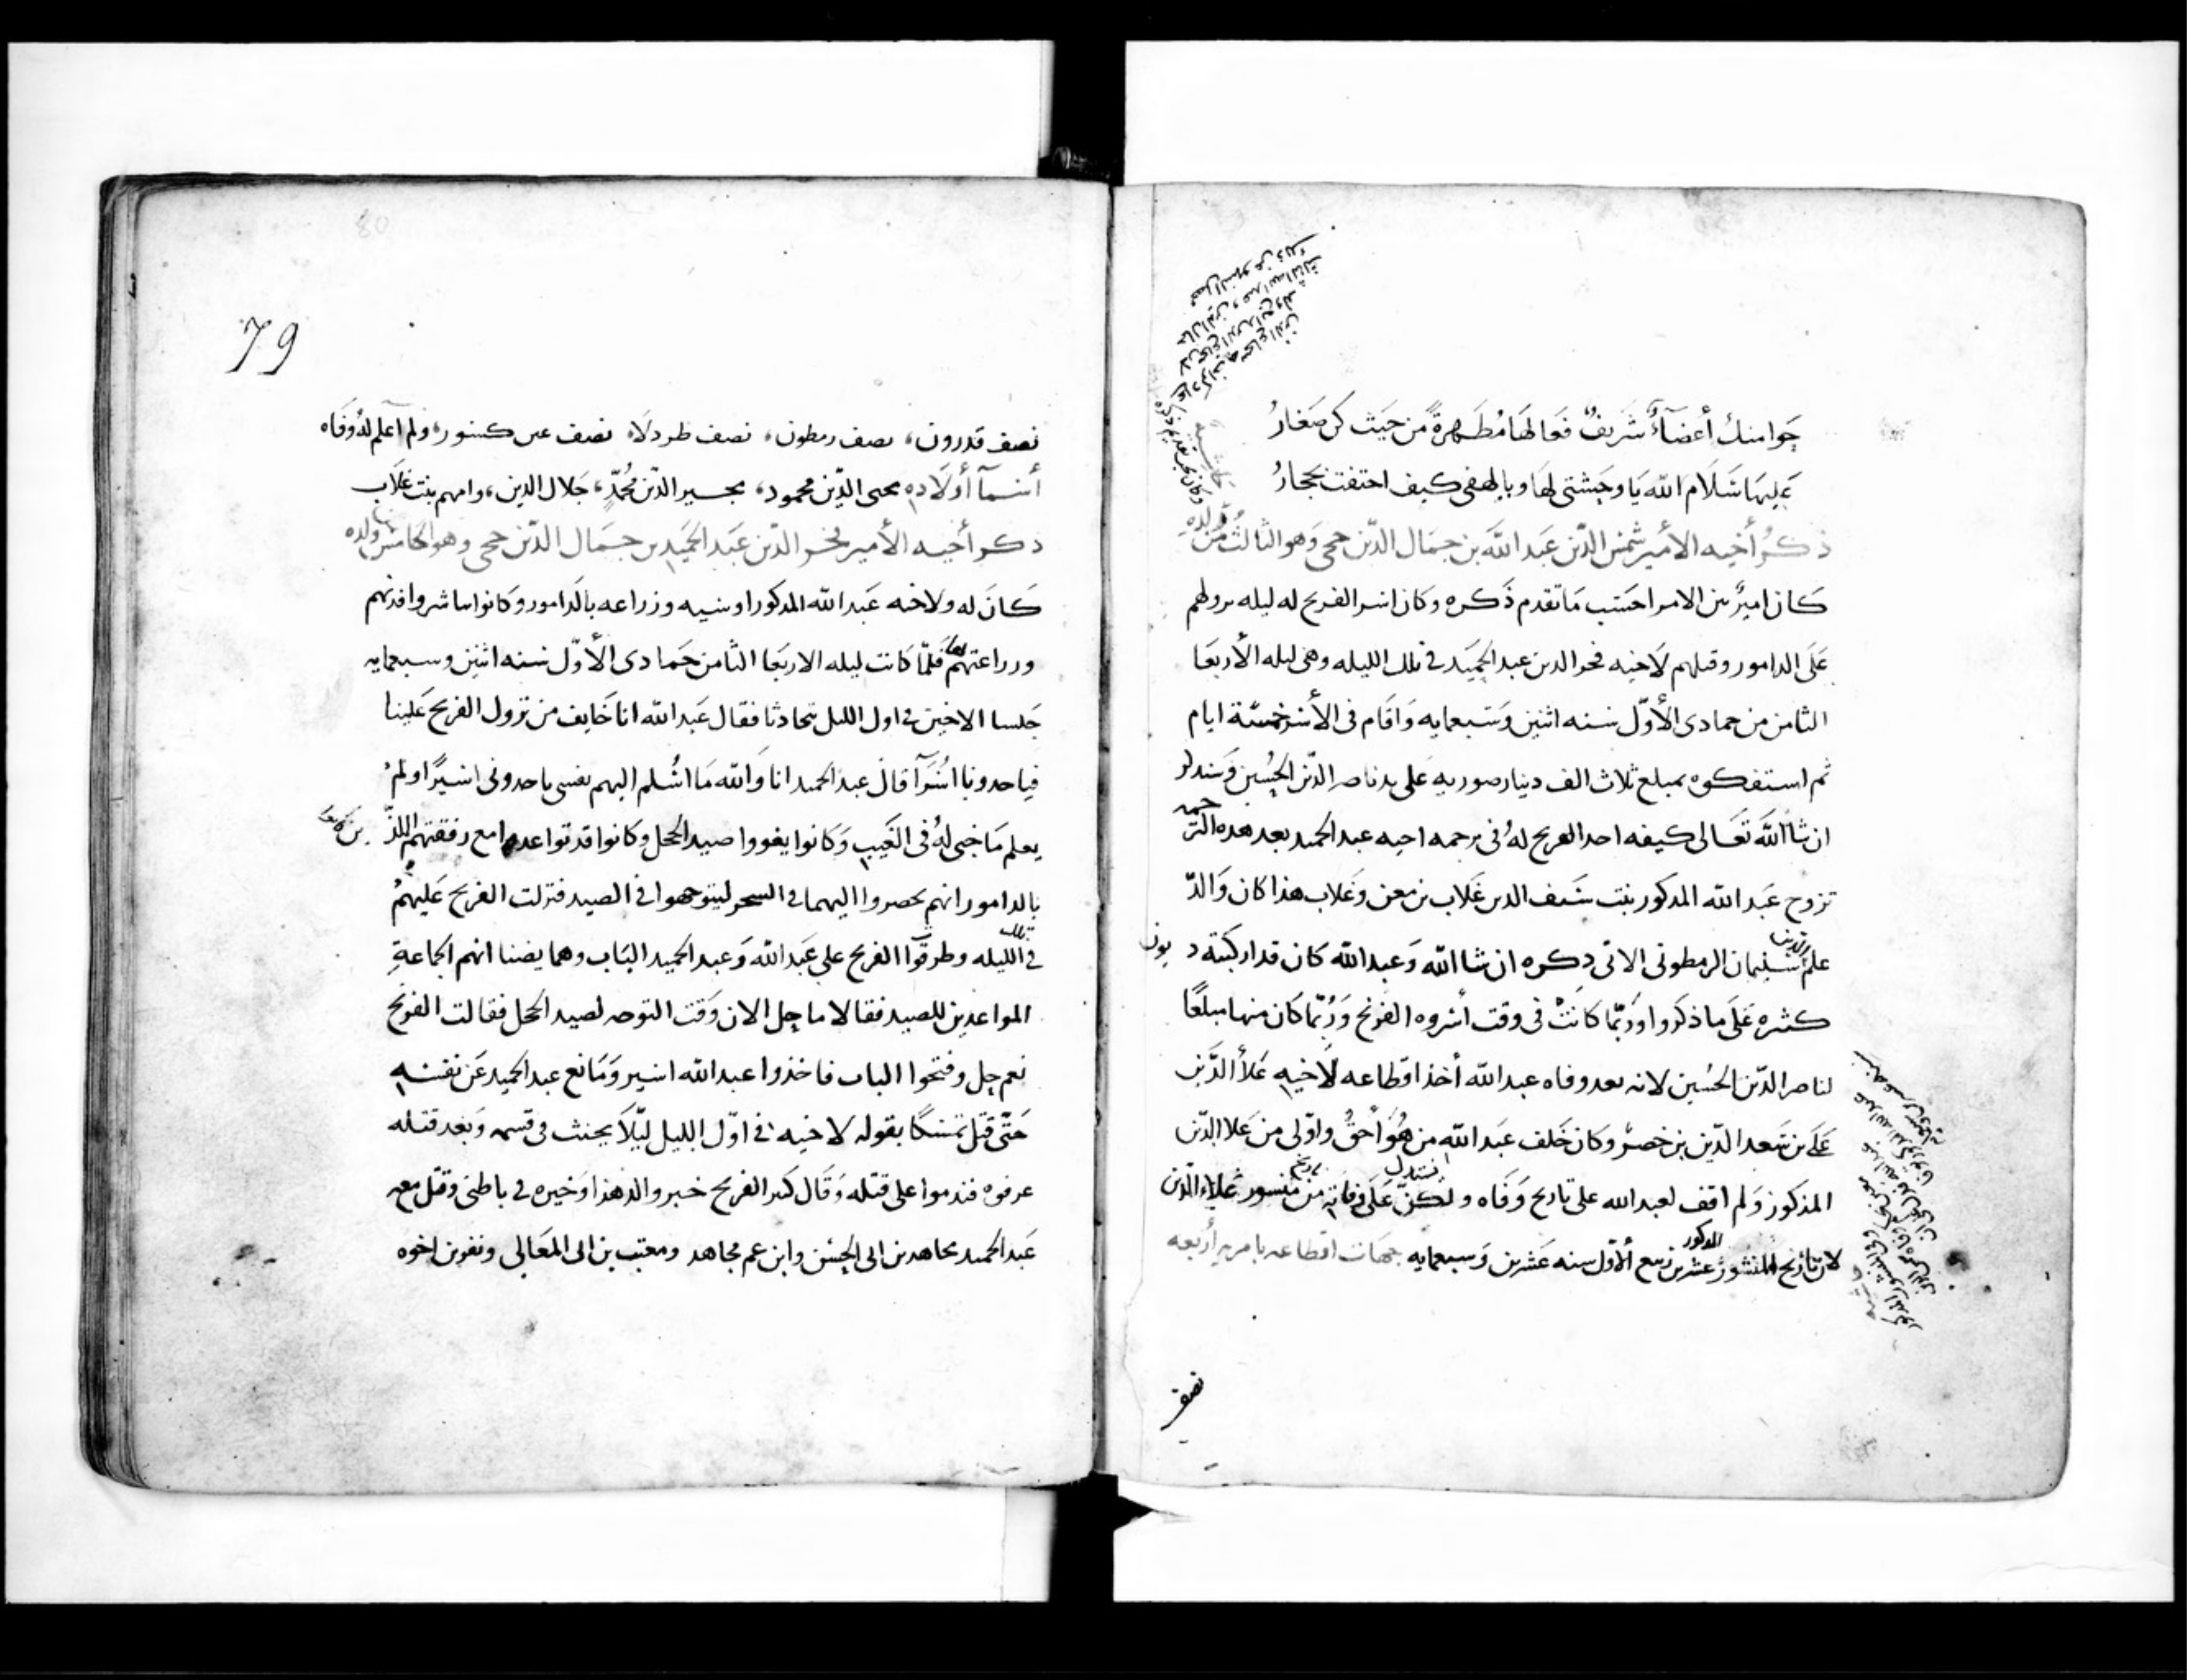 جوامنك أعضآءٌ شريفٌ فعالها مُطهرةً من حيث كن صغارُ
عليها سلام الله يا وحشتي لها ويا لهفي كيف اختفت بحجارُ
ذكرُ أخيه الأمير شمس الدّين عبد الله بن جمال الدّين حجى وهو الثالث من ولده
كان اميرٌ من الامرا حسب ما تقدم ذكره وكان اسر الفرنج له ليله نزولهم
على الدامور وقتلهم لاخيه فخر الدين عبد الحميد في تلك الليله وهى ليله الأربعا
الثامن من جمادى الأوّل سنه اثنين وسبعمايه واقام فى الأسر خمسة ايام
ثم استفكوه بمبلغ ثلاث الف دينار صوريه على يد ناصر الدّين الحُسين وسنذكر
ان شا الله تعالى كيفه اخذ الفرنج لهُ فى ترجمه اخيه عبد الحميد بعد هذه الترجمه
تزوج عبد الله المذكور بنت سيف الدين غلاب بن معن وغلاب هذا كان والدّ
علم الدين سليمان الرمطونى الاتى ذكره ان شا الله وعبد الله كان قد اركبته ديون
كثره على ما ذكروا وربّما كانتْ فى وقت اسروه الفرنج ورُبّما كان منها مبلغًا
لناصر الدّين الحسين لانه بعد وفاه عبد الله أخذ اقطاعه لأخيه علاُ الدّين
على بن سعد الدّين بن خضر وكان خلف عبد الله من هُوَ أحقُ واوّلى من علا الدّين
المذكور ولم اقف لعبد الله على تاريخ وفاه ولكن نستدل على وفاته من تاريخ منشور علاء الدّين
لان تاريخ المنشور المذكور عشرين ربيع ألاوّل سنه عشرين وسبعمايه جهات اقطاعه بامريه أربعه
نصف
79
نصف قدرون، نصف رمطون، نصف طردلا، نصف عين كسور، ولم اعلم لهُ وفاه
أسمآ أولاده محى الدّين محمود، مجير الدّين مُحمّد، جلال الدين، وامهم بنت غلاب
ذكر أخيه الأمير فخر الدّين عبد الحميد بن جمال الدّين حجى وهو الخامس ولده
كانَ له ولاخيه عبد الله المذكور اوسيه وزراعه بالدامور وكانوا يباشروا فدنهم
وزراعتهم بها فلمّا كانت ليله الاربعا الثامن جمادى الأوّل سنه اثنين وسبعمايه
جلسا الاخين في اول الليل يتحادثا فقال عبد الله انا خايف من نزول الفرنج علينا
فياخدونا اسُرآ قال عبد الحميد انا والله ما اسُلم اليهم نفسى ياخدونى اسيرًا ولمْ
يعلم ما خبى لهُ فى الغيب وكانوا يغووا صيد الحجل وكانوا قد تواعدوا مع رفقتهم اللذّين كانوا
بالدامور انهم يحضروا اليهما في السحر ليتوجهوا في الصيد فنزلت الفرنج عليهمُ
في تلك الليله وطرقوّا الفرنج على عبد الله وعبد الحميد الباب وهما يضنا انهم الجماعةِ
المواعدين للصيد فقالا ما جل الان وقت التوجه لصيد الحجل فقالت الفرنج
نعم جل وفتحوا الباب فاخذوا عبد الله اسير ومانع عبد الحميد عن نفسه
حتّى قتل تمسكًا بقوله لاخيه في اوّل الليل ليّلا يحنث فى قسمه وبعد قتله
عرفوه فندموا على قتله وقال كبير الفرنج خبر والد هذا وخيره في باطنى وقتل معه
عبد الحميد مجاهد بن ابى الحسن وابن عم مجاهد ومعتب بن ابى المعالى ونفرين اخوه